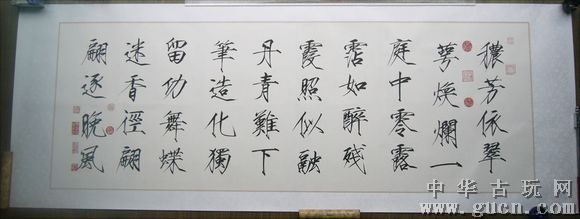 穠芳依翠
萼煥爛一
庭中零露
霑如醉殘
霞照似融
丹青難下
筆造化獨
留功舞蝶
迷香徑翩
翩逐晚風
中华古玩网
www.gucn.com